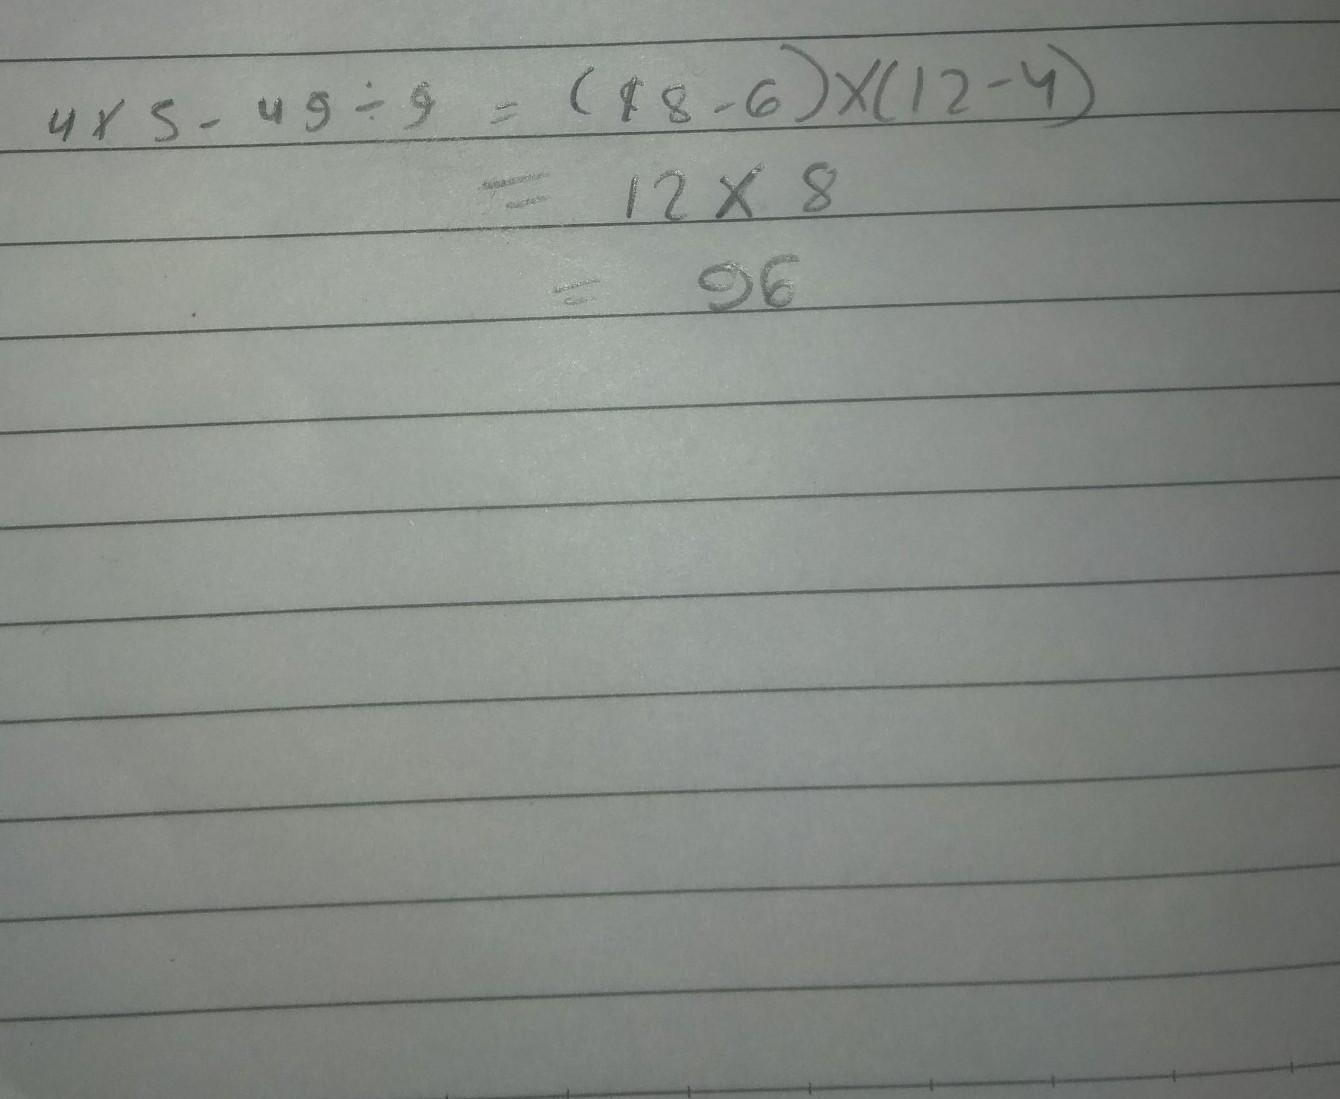 4 x 5 - 49 ÷ 9 = (18-6)X(12-4)
= 12 X 8
= 96